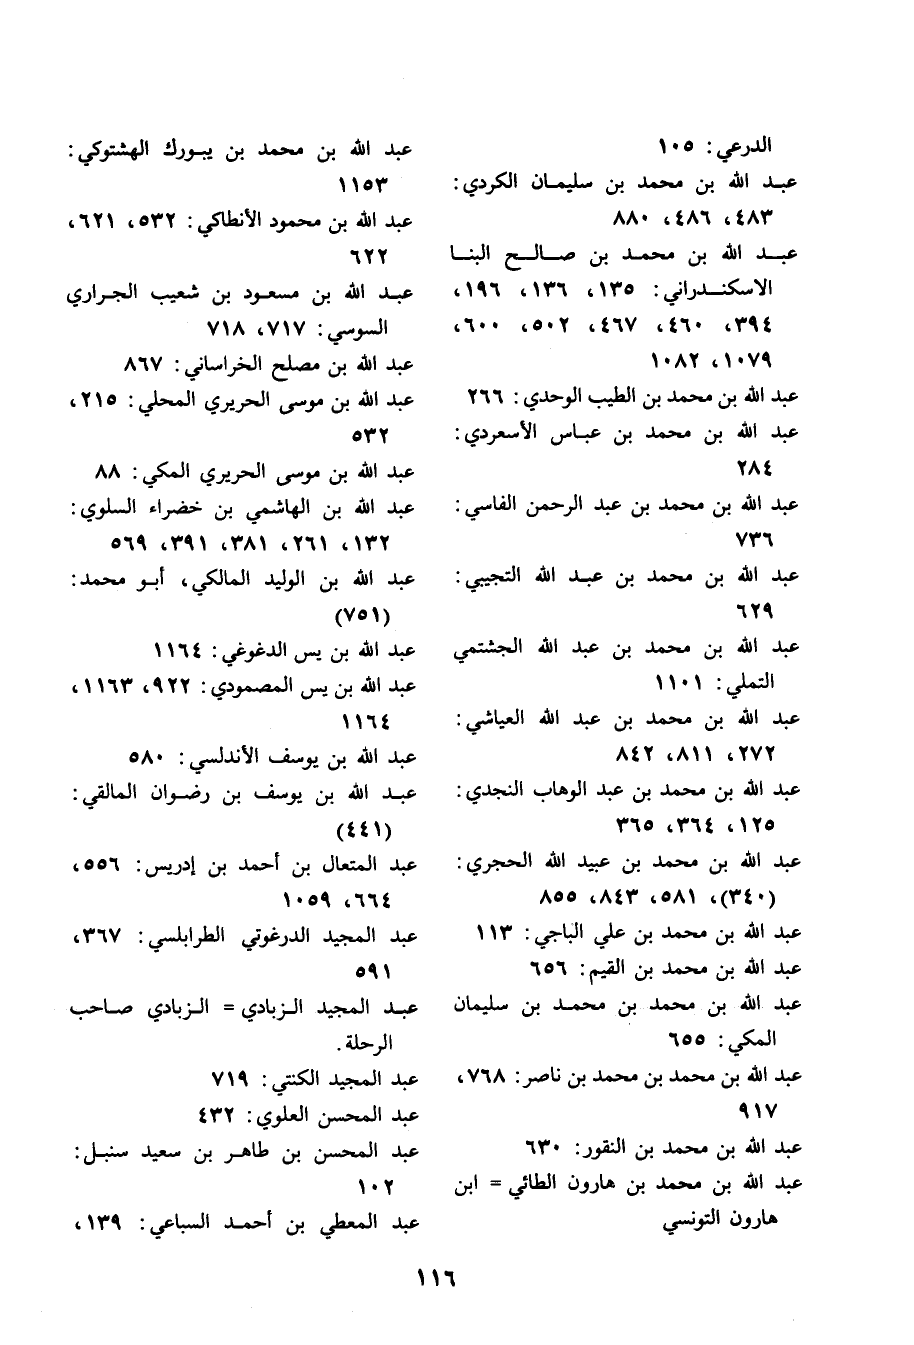 الدرعي: ١٠٥
عبد الله بن محمد بن سليمان الكردي:
٤٨٣، ٤٨٦، ٨٨٠
عبد الله بن محمد بن صالح البنا
الاسكندراني: ١٣٥، ١٣٦، ١٩٦،
٣٩٤، ٤٦٠، ٤٦٧، ٥٠٢، ٦٠٠،
١٠٧٩، ١٠٨٢
عبد الله بن محمد بن الطيب الوحدي: ٢٦٦
عبد الله بن محمد بن عباس الأسعردي:
٢٨٤
عبد الله بن محمد بن عبد الرحمن الفاسي:
٧٣٦
عبد الله بن محمد بن عبد الله التجيبي:
٦٢٩
عبد الله بن محمد بن عبد الله الجشتمي
التملي: ١١٠١
عبد الله بن محمد بن عبد الله العياشي:
٢٧٢، ٨١١، ٨٤٢
عبد الله بن محمد بن عبد الوهاب النجدي:
١٢٥، ٣٦٤، ٣٦٥
عبد الله بن محمد بن عبيد الله الحجري:
(٣٤٠)، ٥٨١، ٨٤٣، ٨٥٥
عبد الله بن محمد بن علي الباجي: ١١٣
عبد الله بن محمد بن القيم: ٦٥٦
عبد الله بن محمد بن محمد بن سليمان
المكي: ٦٥٥
عبد الله بن محمد بن محمد بن ناصر: ٧٦٨،
٩١٧
عبد الله بن محمد بن النقور: ٦٣٠
عبد الله بن محمد بن هارون الطائي = ابن
هارون التونسي
عبد الله بن محمد بن يبورك الهشتوكي:
١١٥٣
عبد الله بن محمود الأنطاكي: ٥٣٢، ٦٢١،
٦٢٢
عبد الله بن مسعود بن شعيب الجراري
السوسي: ٧١٧، ٧١٨
عبد الله بن مصلح الخراساني: ٨٦٧
عبد الله بن موسى الحريري المحلي: ٢١٥،
٥٣٢
عبد الله بن موسى الحريري المكي: ٨٨
عبد الله بن الهاشمي بن خضراء السلوي:
١٣٢، ٢٦١، ٣٨١، ٣٩١، ٥٦٩
عبد الله بن الوليد المالكي، أبو محمد:
(٧٥١)
عبد الله بن يس الدغوغي: ١١٦٤
عبد الله بن يس المصمودي: ٩٢٢، ١١٦٣،
١١٦٤
عبد الله بن يوسف الأندلسي: ٥٨٠
عبد الله بن يوسف بن رضوان المالقي:
(٤٤١)
عبد المتعال بن أحمد بن إدريس: ٥٥٦،
٦٦٤، ١٠٥٩
عبد المجيد الدرغوتي الطرابلسي: ٣٦٧،
٥٩١
عبد المجيد الزبادي = الزبادي صاحب
الرحلة.
عبد المجيد الكنتي: ٧١٩
عبد المحسن العلوي: ٤٣٢
عبد المحسن بن طاهر بن سعيد سنبل:
١٠٢
عبد المعطي بن أحمد السباعي: ١٣٩،
١١٦